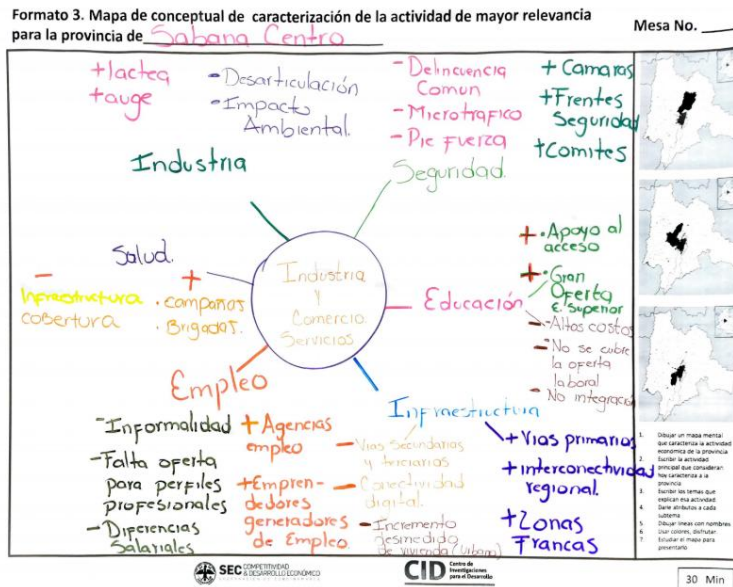 Formato 3. Mapa de conceptual de caracterización de la actividad de mayor relevancia
para la provincia de Sabana Centro
Mesa No.
+ lactea
+ auge
- Desarticulación
- Impacto
Ambiental.
Industria
- Delincuencia
Comun
- Microtrafico
- Pie Fuerza
+ Camaras
+ Frentes
Seguridad
+ Comites
Seguridad.
Salud.
-
Infraestructura
cobertura
+
. campañas
. Brigadas.
Industria
y
Comercio
Servicios
Educación
+ . Apoyo al
acceso
+ . Gran
Oferta
E. Superior
- Altos costos
- No se cubre
la oferta
laboral
- No integración
Empleo
- Informalidad
- Falta oferta
para perfiles
profesionales
- Diferencias
Salariales
+ Agencias
empleo
+ Empren-
dedores
generadores
de Empleo
Infraestructura
- Vias Secundarias
y terciarias
- Conectividad
digital.
- Incremento
desmedido
de vivienda (Urbano)
+ Vias primarias
+ interconectividad
regional.
+ Zonas
Francas
1. Dibujar un mapa mental
que caracteriza la actividad
económica de la provincia
2. Escribir la actividad
principal que consideran
hoy caracteriza a la
provincia
3. Escribir los temas que
explican esa actividad
4. Darle atributos a cada
subtema
5. Dibujar líneas con nombres
6. Usar colores, disfrutar.
7. Estudiar el mapa para
presentarlo
SEC COMPETITIVIDAD
& DESARROLLO ECONÓMICO
CID Centro de
Investigaciones
para el Desarrollo
30 Min